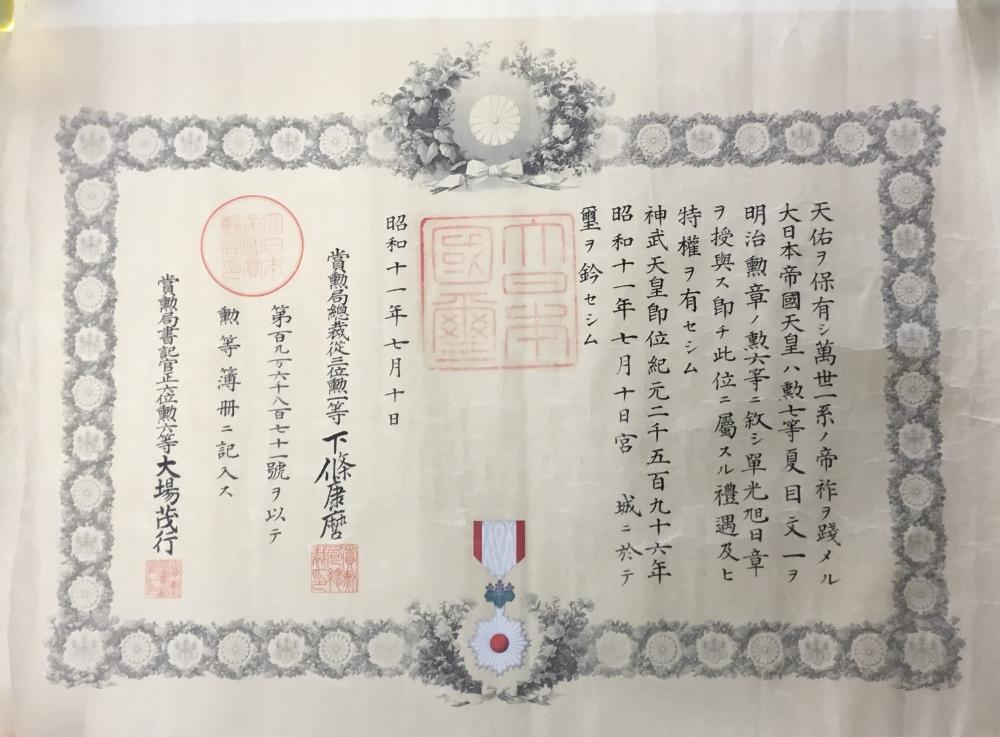 天佑ヲ保有シ萬世一系ノ帝祚ヲ踐メル
大日本帝國天皇ハ勲七等夏目文一ヲ
明治勲章ノ勲六等ニ敘シ單光旭日章
ヲ授與ス即チ此位ニ屬スル禮遇及ヒ
特權ヲ有セシム
神武天皇即位紀元二千五百九十六年
昭和十一年七月十日宮城ニ於テ
璽ヲ鈐セシム
大日本
國璽
昭和十一年七月十日
賞勲局總裁從三位勲一等下條康麿
第百九万六千八百七十一號ヲ以テ
勲等簿册ニ記入ス
賞勲局書記官正六位勲六等大場茂行